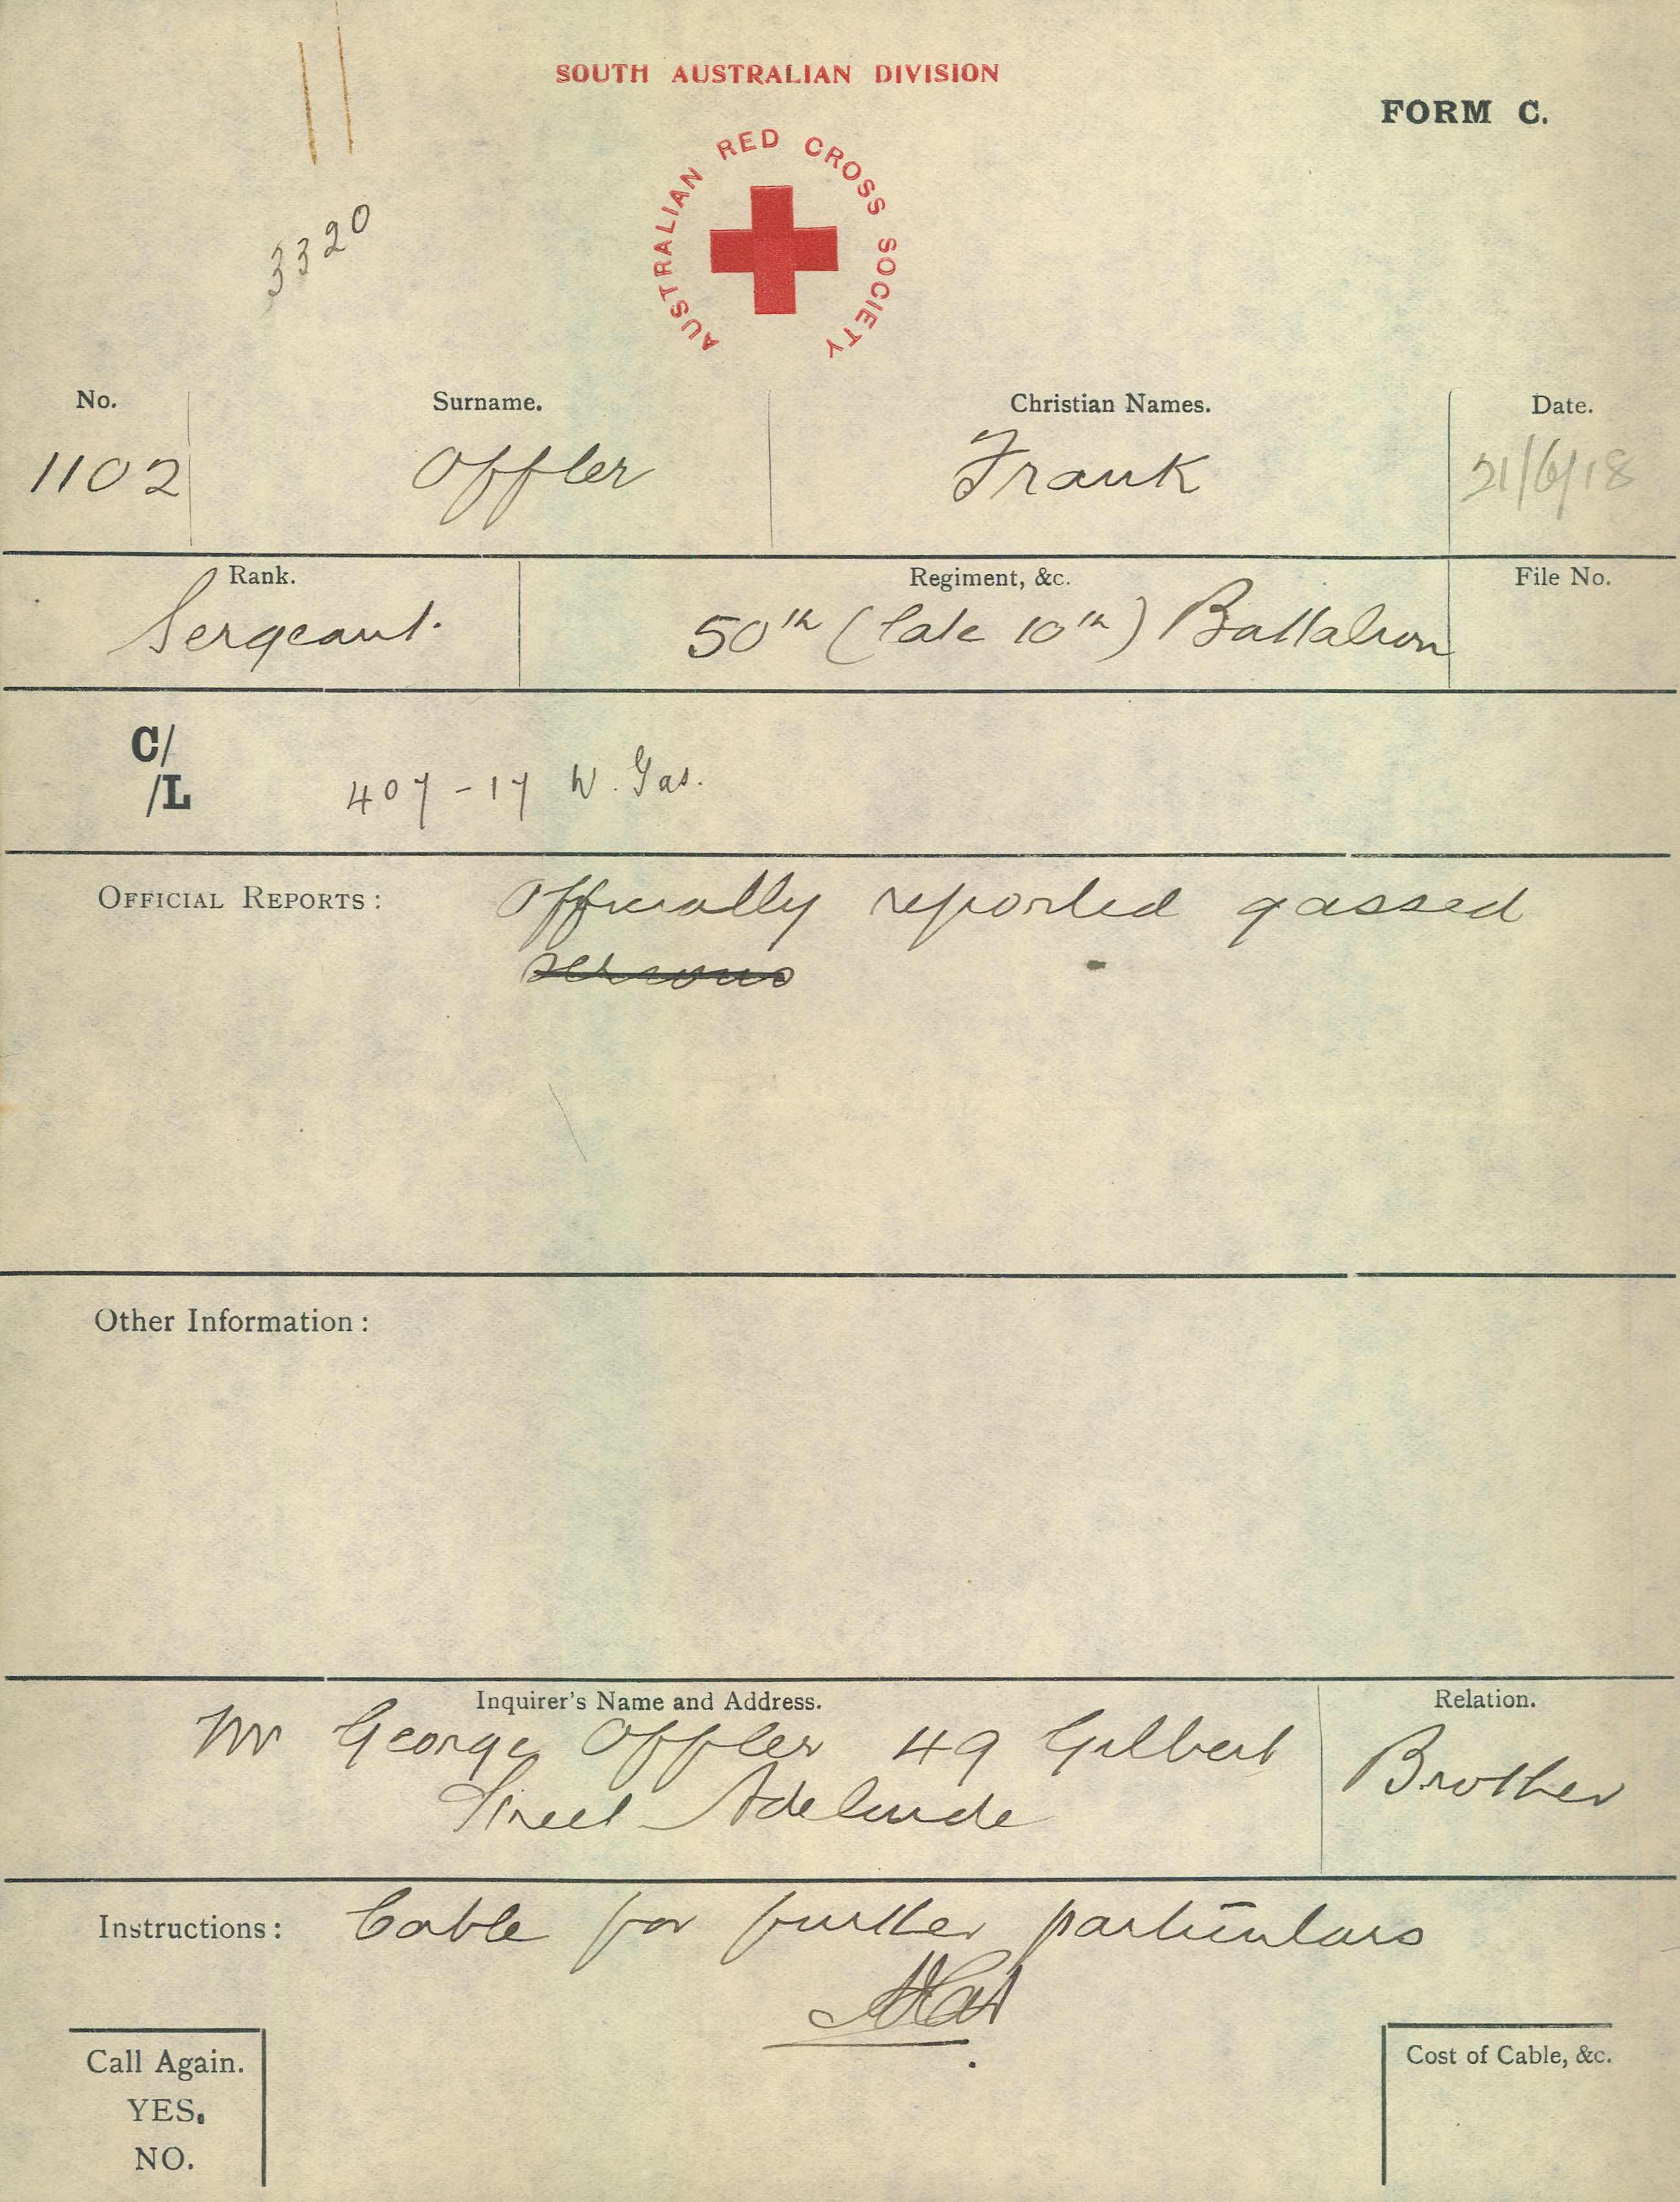 SOUTH AUSTRALIAN DIVISION
FORM C.
AUSTRALIAN RED CROSS SOCIETY
3320
No. Surname. Christian Names. Date.
1102 Offler Frank 21/6/18
Rank. Regiment, &c. File No.
Sergeant. 50th (late 10th) Battalion
C/
/L 407-17 W. Gas.
OFFICIAL REPORTS: Officially reported gassed
Inquirer's Name and Address. Relation.
Other Information:
Mr George Offler 49 Gilbert
Street Adelaide
Brother
Instructions: Cable for further particulars
Call Again.
YES.
NO.
Cost of Cable, &c.